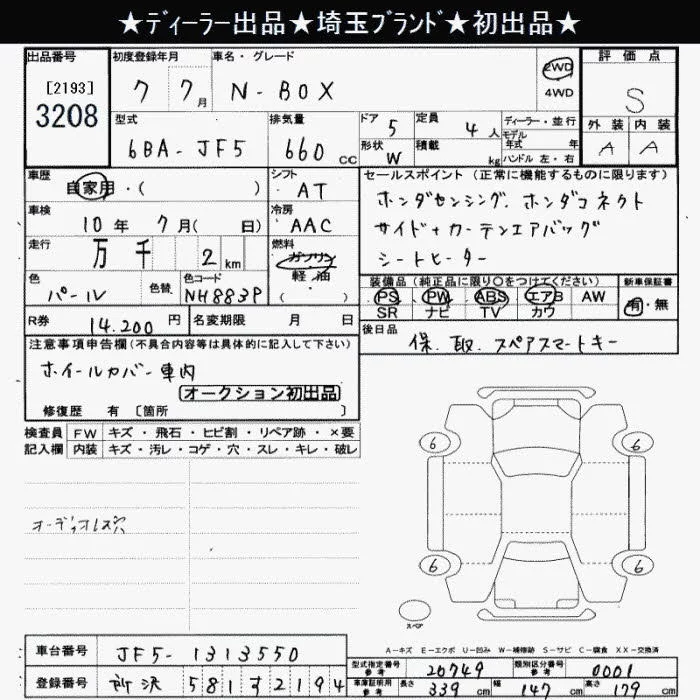 ★ディーラー出品★埼玉ブランド★初出品★
出品番号 初度登録年月 車名・グレード 評価点
[2193]
3208
7 7月 N-BOX 2WD 4WD S
型式 排気量 ドア 定員 ディーラー・並行 外装 内装
6BA-JF5 660 CC 5 4人 モデル年式 年 A A
形状 積載
W kg ハンドル 左・右
車歴 シフト セールスポイント(正常に機能するものに限ります)
自家用・( ) AT ホンダセンシング、ホンダコネクト
車検 冷房 サイド+カーテンエアバッグ
10年 7月( 日) AAC シートヒーター
走行 燃料
万 千 2 km ガソリン
軽油
( )
色 色替 色コード 装備品(純正品に限り○をつけてください) 新車保証書
パール NH883P PS PW ABS エアB AW 有・無
SR ナビ TV カワ
R券 14.200円 名変期限 月 日 後日品
保、取、スペアスマートキー
注意事項申告欄(不具合内容等は具体的に記入して下さい)
ホイールカバー車内
オークション初出品
修復歴 有 〔箇所 〕
検査員 FW キズ・飛石・ヒビ割・リペア跡・×要
記入欄 内装 キズ・汚レ・コゲ・穴・スレ・キレ・破レ
6 6
オーディオレス穴
6 6
スペア
A-キズ E-エクボ U-凹み W-補修跡 S-サビ C-腐食 XX-交換済
車台番号 JF5-1313550
型式指定番号 参考 20749 類別区分番号 参考 0001
登録番号 所沢 581 す 2194
車庫証明用 参考 長さ 339 cm 幅 147 cm 高さ 179 cm